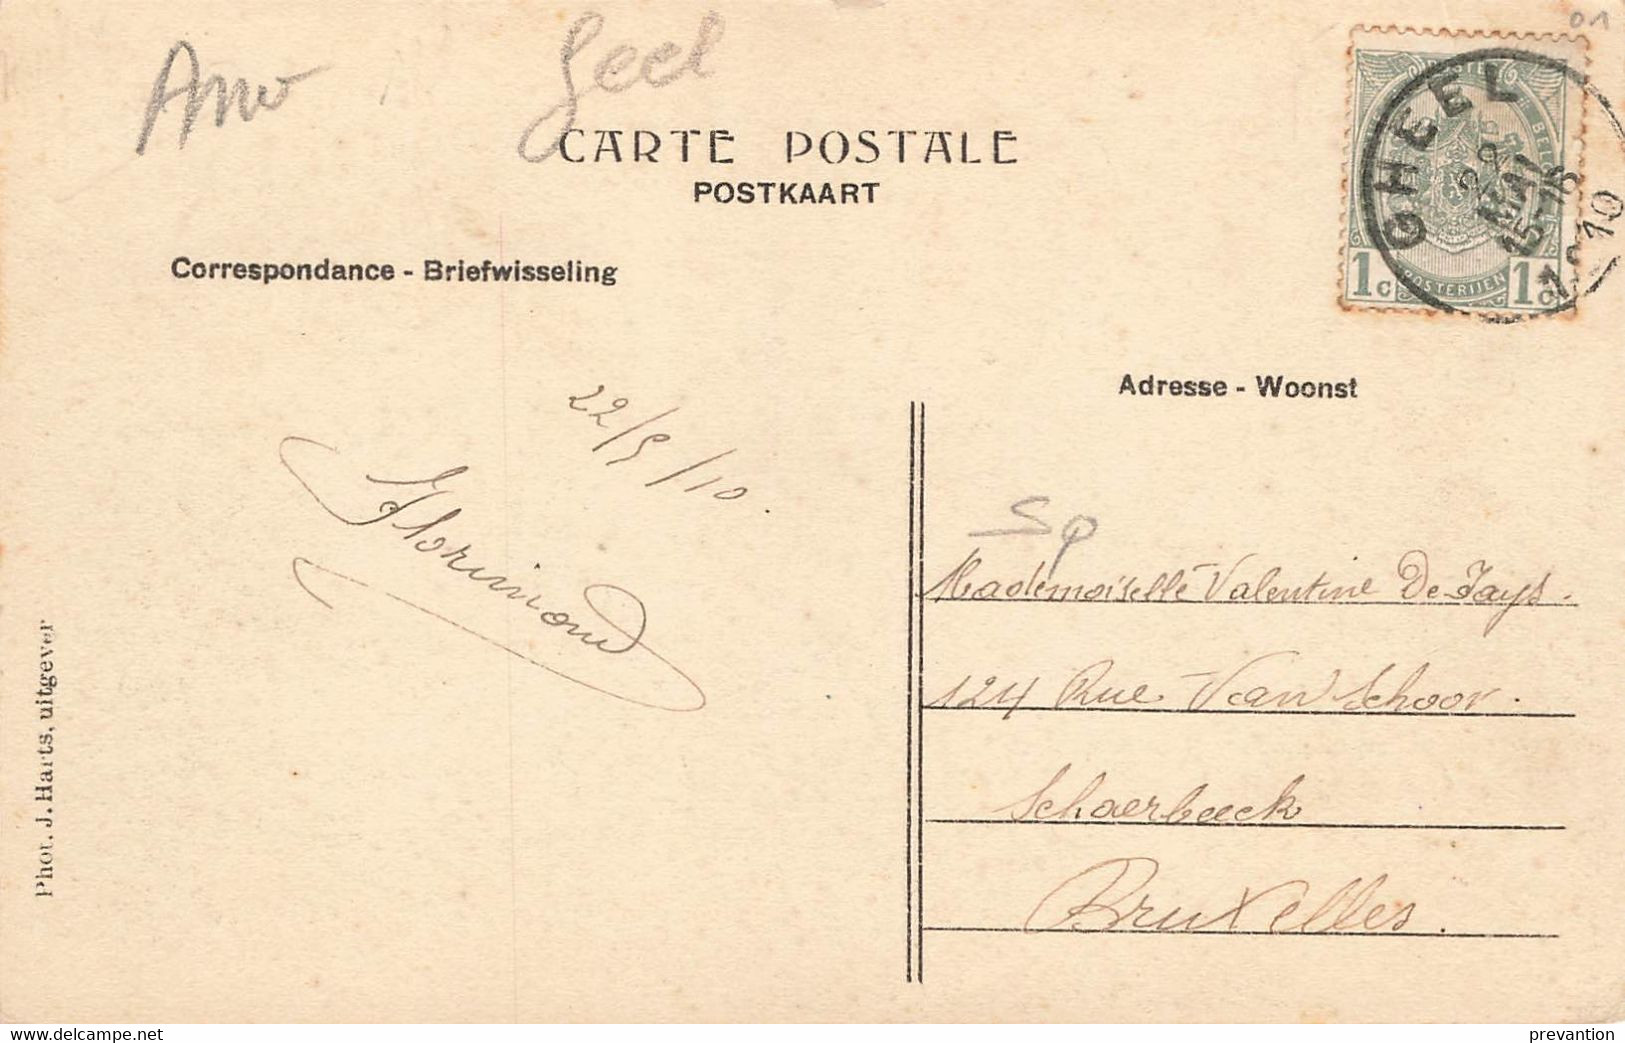 01
Geel
CARTE POSTALE
POSTKAART
POSTES BELG
POSTERIJEN
1c 1c
GHEEL
MAI
15-16
1910
Correspondance - Briefwisseling
Adresse - Woonst
22/5/10.
Florimond
Sp
Mademoiselle Valentine De Jays.
124 Rue Van Schoor.
Schaerbeeck
Bruxelles.
Phot. J. Harts, uitgever
https://www.delcampe.net
prevantion